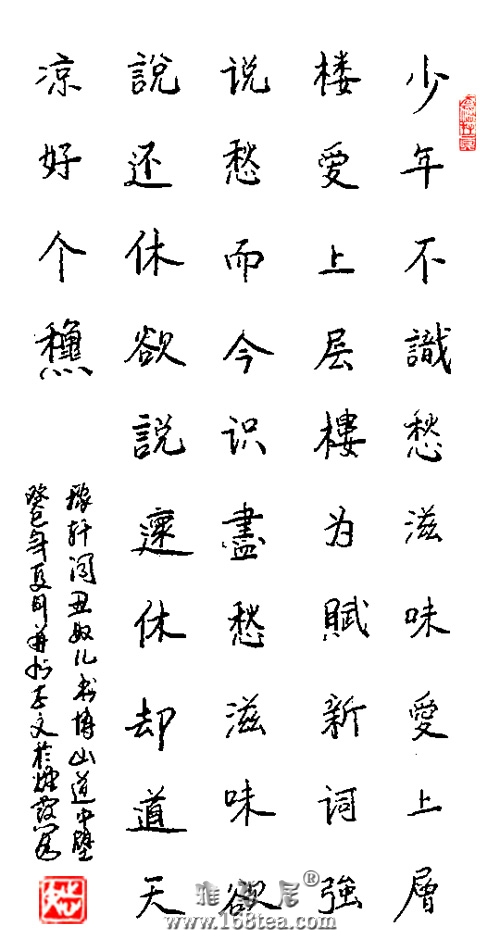 少年不識愁滋味愛上層
楼愛上层樓为賦新词強
说愁而今识盡愁滋味欲
說还休欲説還休却道天
凉好个龝
稼轩词丑奴儿书博山道中壁
癸巳年夏月
雅茗居®
www.168tea.com